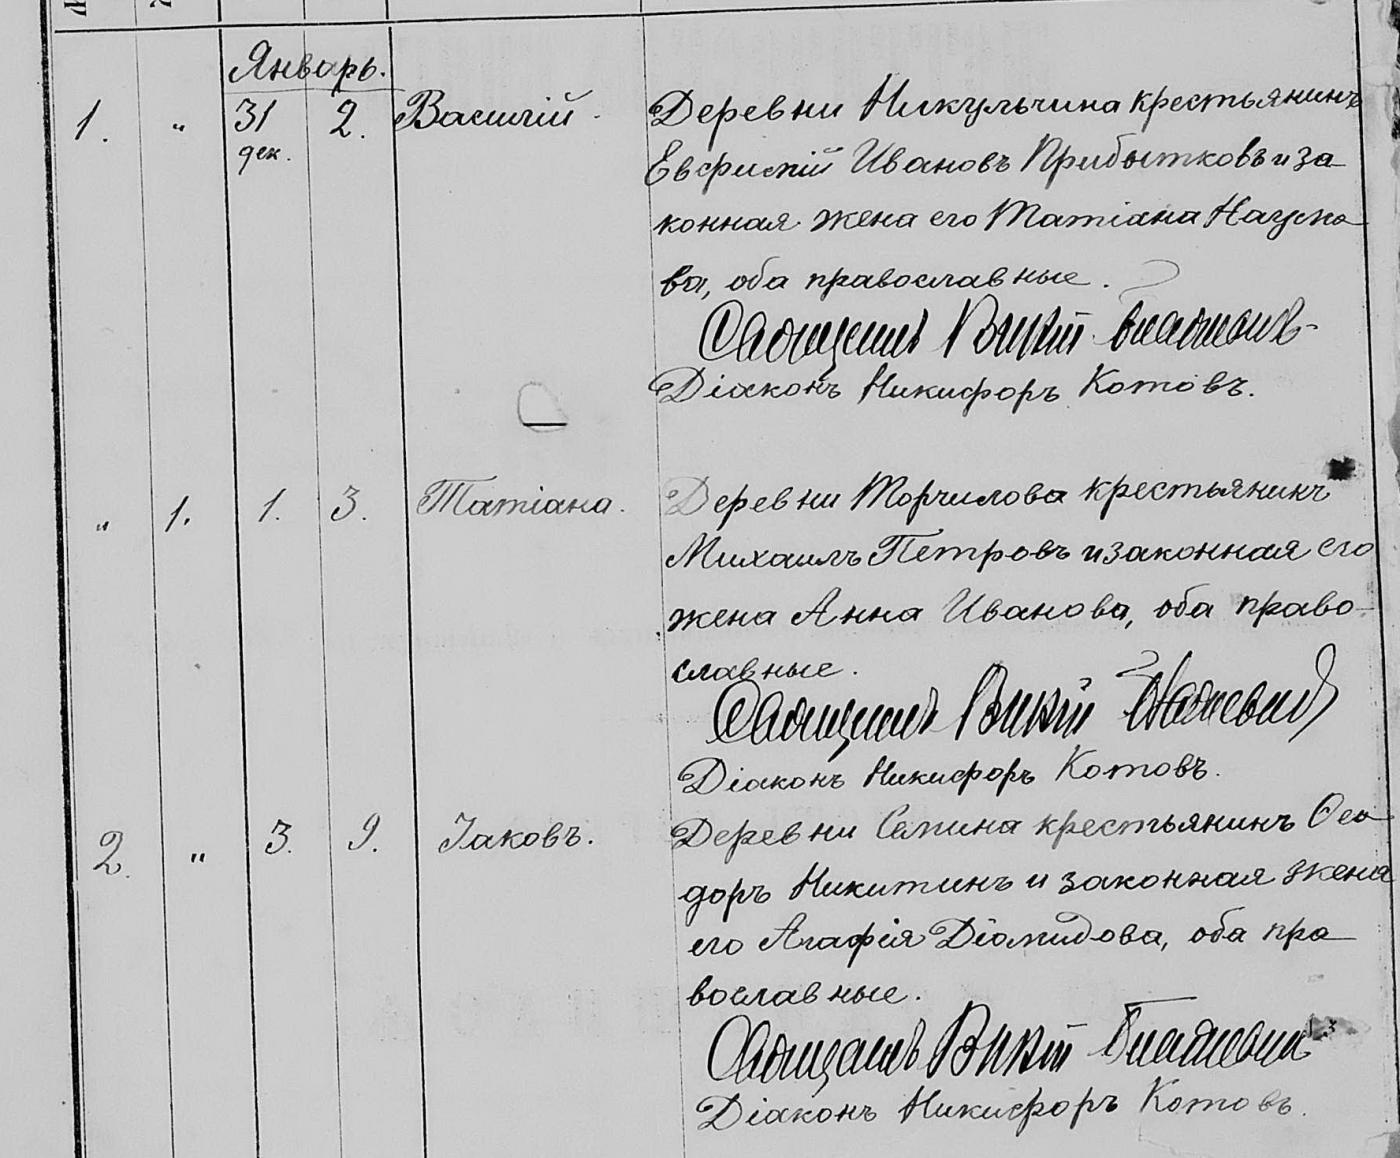 Январь.
1. " 31 2. Василій.
дек.
Деревни Никульчина крестьянинъ
Евфимій Ивановъ Прибытковъ и за
конная жена его Татіана Наумо
ва, оба православные.
Священникъ
Діаконъ Никифоръ Котовъ.
" 1. 1. 3. Татіана.
Деревни Торчилова крестьянинъ
Михаилъ Петровъ и законная его
жена Анна Иванова, оба право-
славные.
Священникъ
Діаконъ Никифоръ Котовъ.
2. " 3. 9. Іаковъ.
Деревни крестьянинъ Ѳео
доръ Никитинъ и законная жена
его Агафія Діомидова, оба пра
вославные.
Священникъ
Діаконъ Никифоръ Котовъ.